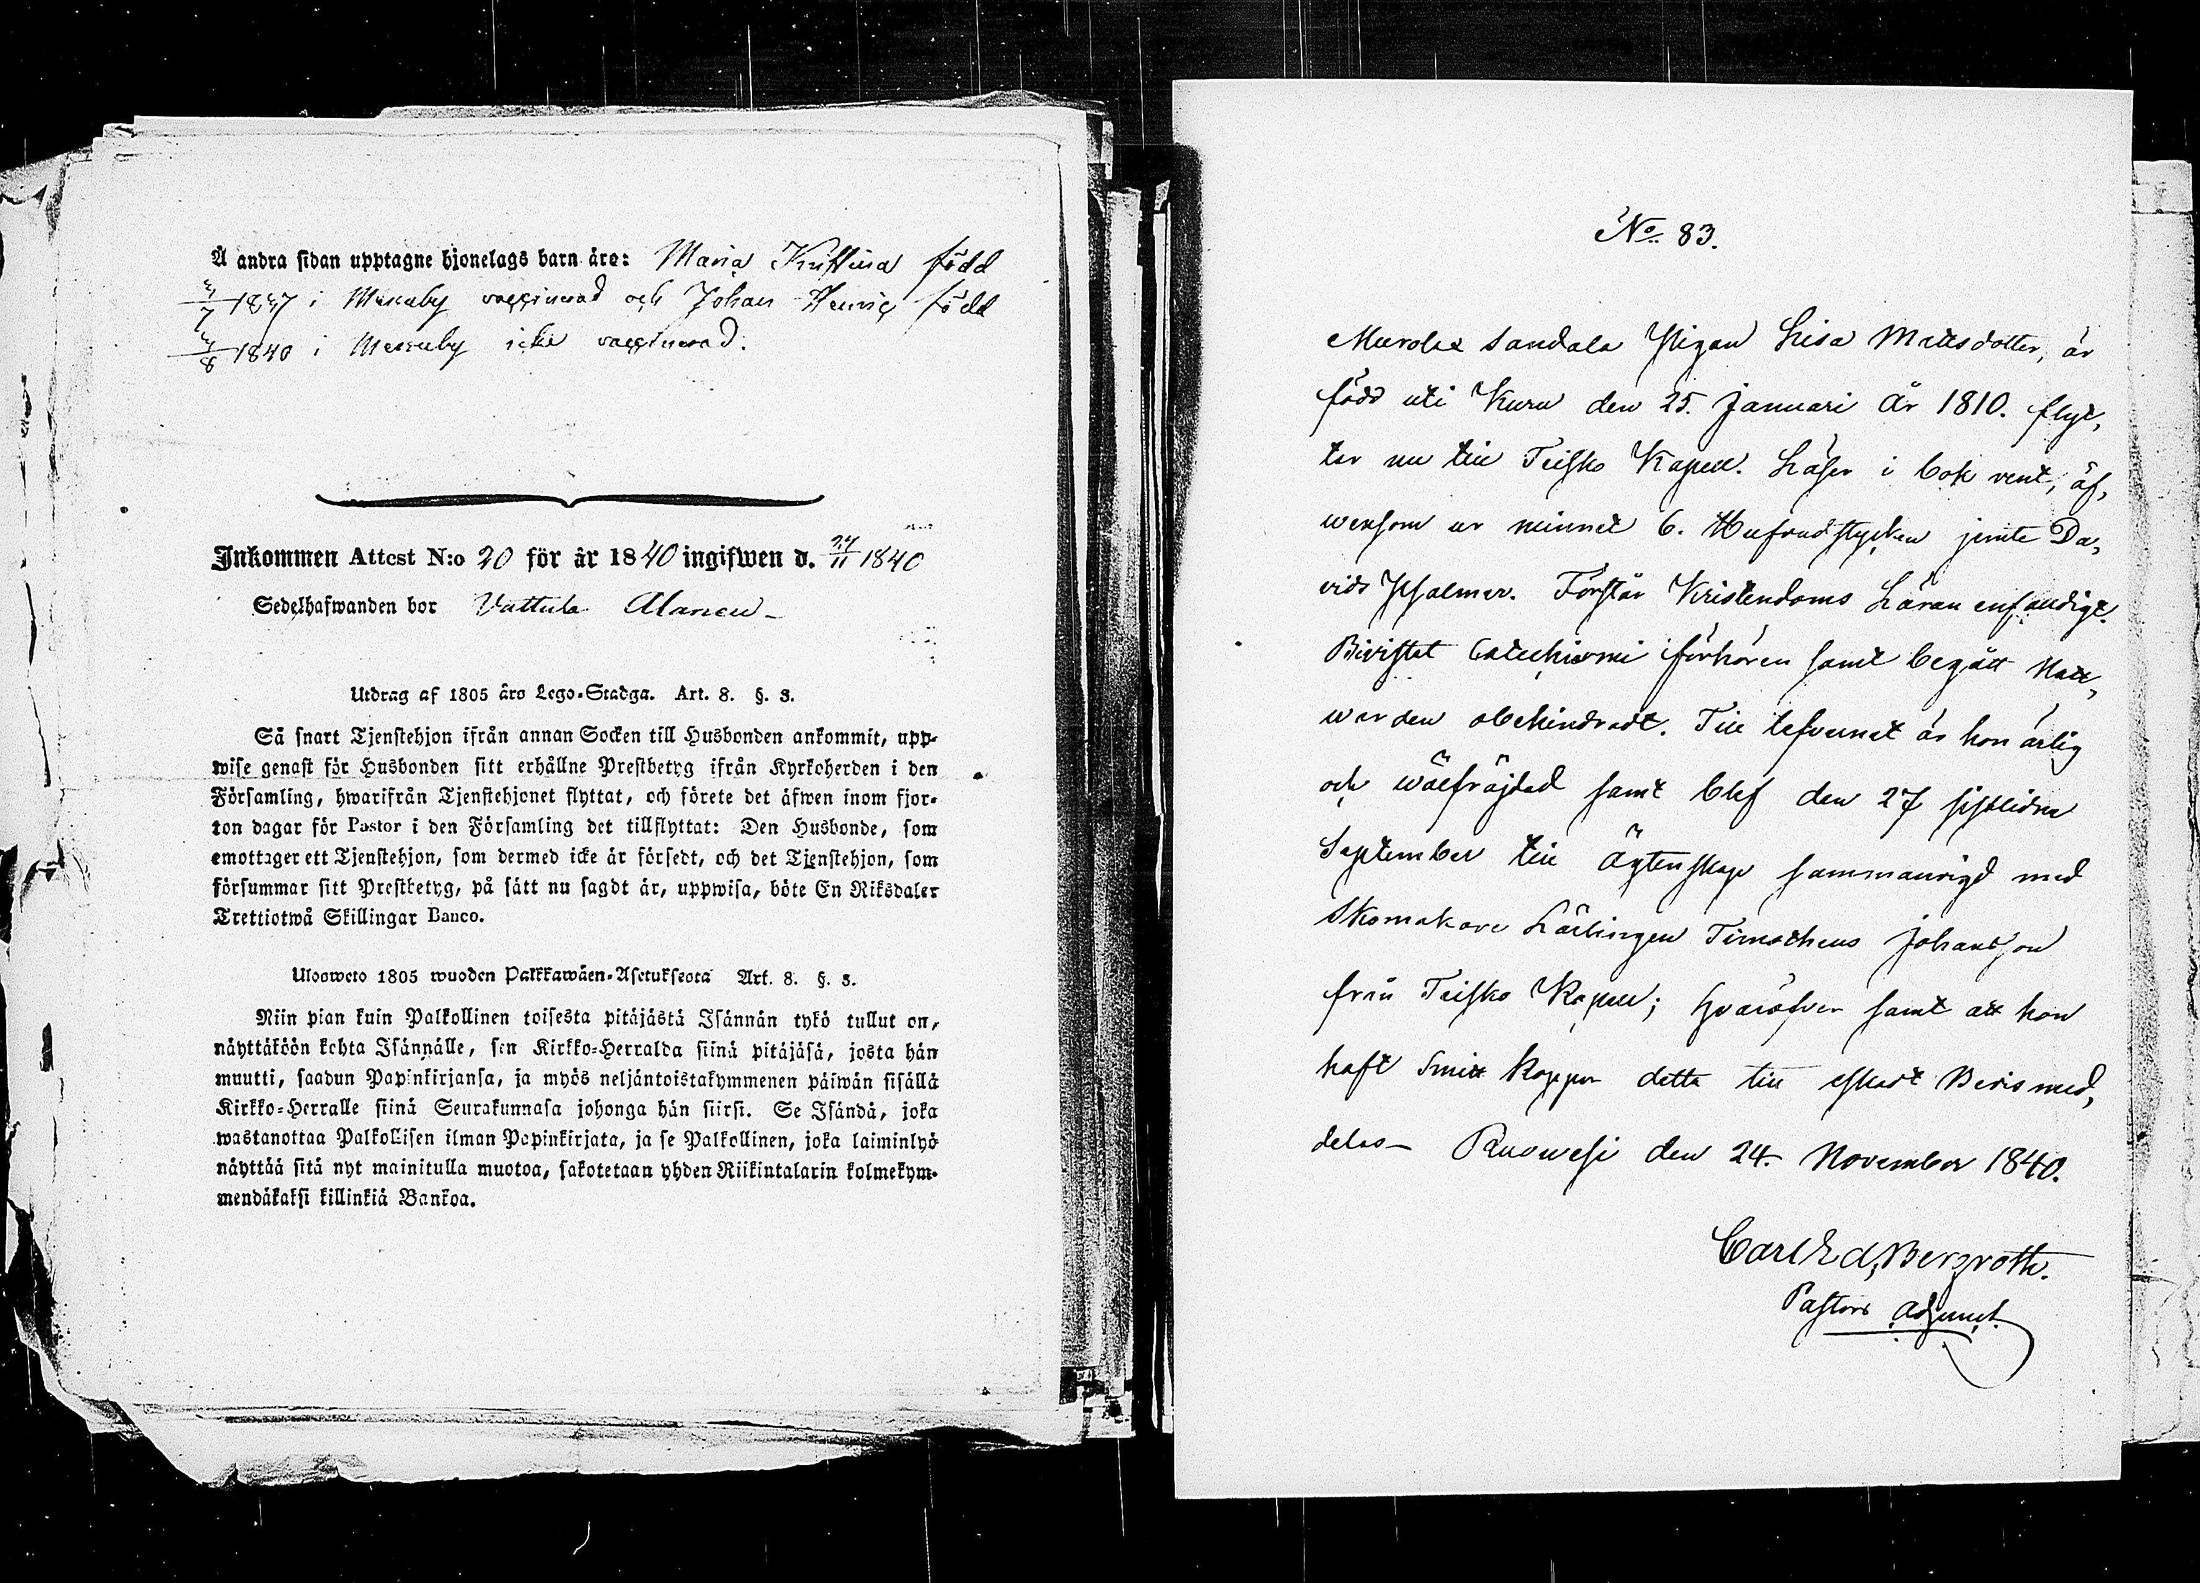 Å andra sidan upptagne hjonelags barn äre: Maria Kristina född
3/7 1837 i Messuby vaccinerad och Johan Henric född
3/8 1840 i Messuby icke vaccinerad.
Inkommen Attest N:o 20 för år 1840 ingifwen d. 29/11 1840
Sedelhafwanden bor Vattula Alanen
Utdrag af 1805 års Lego-Stadga. Art. 8. §. 3.
Så snart Tjenstehjon ifrån annan Socken till Husbonden ankommit, upp-
wise genast för Husbonden sitt erhållne Prestbetyg ifrån Kyrkoherden i den
Församling, hwarifrån Tjenstehjonet flyttat, och förete det äfwen inom fjor-
ton dagar för Pastor i den Församling det tillflyttat: Den Husbonde, som
emottager ett Tjenstehjon, som dermed icke är försedt, och det Tjenstehjon, som
försummar sitt Prestbetyg, på sätt nu sagdt är, uppwisa, böte En Riksdaler
Trettiotwå Skillingar Banco.
Ulosweto 1805 wuoden Palkkawäen-Asetuksesta Art. 8. §. 3.
Niin pian kuin Palkollinen toisesta pitäjästä Isännän tykö tullut on,
näyttäköön kohta Isännälle, sen Kirkko-Herralda siinä pitäjäsä, josta hän
muutti, saadun Papinkirjansa, ja myös neljäntoistakymmenen päiwän sisällä
Kirkko-Herralle siinä Seurakunnasa johonga hän siirsi. Se Isändä, joka
wastanottaa Palkollisen ilman Papinkirjata, ja se Palkollinen, joka laiminlyö
näyttää sitä nyt mainitulla muotoa, sakotetaan yhden Riikintalarin kolmekym-
mendäkaksi killinkiä Bankoa.
No 83.
Murole Sandala Pigan Lisa Mattsdotter, är
född uti Kuru den 25. Januari År 1810. flyt,
ter nu till Teisko Kapell. Läser i bok rent, äf,
wensom ur minnet 6. Hufvudstycken jemte Da,
vids Psalmer. Förstår Kristendoms Läran enfaldigt.
Bivistat Catechismi förhören samt begått Natt,
warden obehindradt. Till lefvernet är hon ärlig
och wälfräjdad samt blef den 27 sistlidne
September till Ägtenskap sammanvigd med
Skomakare Lärlingen Timotheus Johansson
från Teisko Kapell; hvaröfver samt att hon
haft Smitt koppor detta till äskadt Bevis med,
delas – Ruowesi den 24. November 1840.
Carl Ed. Bergroth.
Pastors Adjunct.